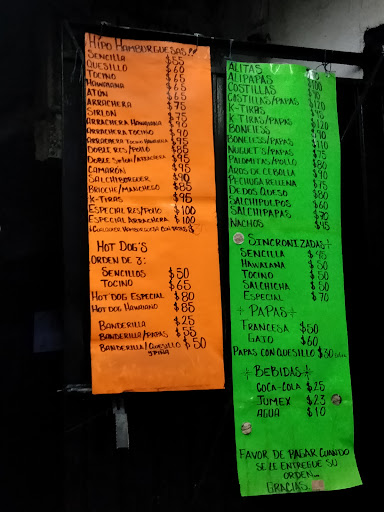 HIPO HAMBURGUESAS!!
SENCILLA $55
QUESILLO $60
TOCINO $65
HAWAIANA $65
ATÚN $65
ARRACHERA $75
SIRLON $75
ARRACHERA HAWAIANA $90
ARRACHERA TOCINO $90
ARRACHERA TOCINO HAWAIANA $95
DOBLE RES/POLLO $85
DOBLE SIRLON/ARRACHERA $95
CAMARÓN $95
SALCHIBURGUER $90
BRIOCHE/MANCHEGO $85
K-TIRAS $95
ESPECIAL RES/POLLO $100
ESPECIAL ARRACHERA $100
HOT DOG'S
ORDEN DE 3:
SENCILLOS $50
TOCINO $65
HOT DOG ESPECIAL $80
HOT DOG HAWAIANO $85
BANDERILLA $25
BANDERILLA/PAPAS $55
BANDERILLA/QUESILLO $50
ALITAS
ALIPAPAS $100
COSTILLAS $90
COSTILLAS/PAPAS $120
K-TIRAS $95
K TIRAS/PAPAS $120
BONELESS $90
BONELESS/PAPAS $110
NUGGETS/PAPAS $75
PALOMITAS/POLLO $80
AROS DE CEBOLLA
PECHUGA RELLENA $75
DEDOS QUESO $80
SALCHIPULPOS $60
SALCHIPAPAS $70
NACHOS $45
SINCRONIZADAS
SENCILLA $45
HAWAIANA $50
TOCINO $50
SALCHICHA $50
ESPECIAL $70
PAPAS
FRANCESA $50
GAJO $60
PAPAS CON QUESILLO $30
BEBIDAS
COCA-COLA $25
JUMEX $23
AGUA $10
FAVOR DE PAGAR CUANDO
SE LE ENTREGUE SU
ORDEN...
GRACIAS